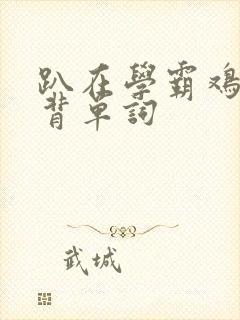 趴在學霸鳮
背單詞
武城